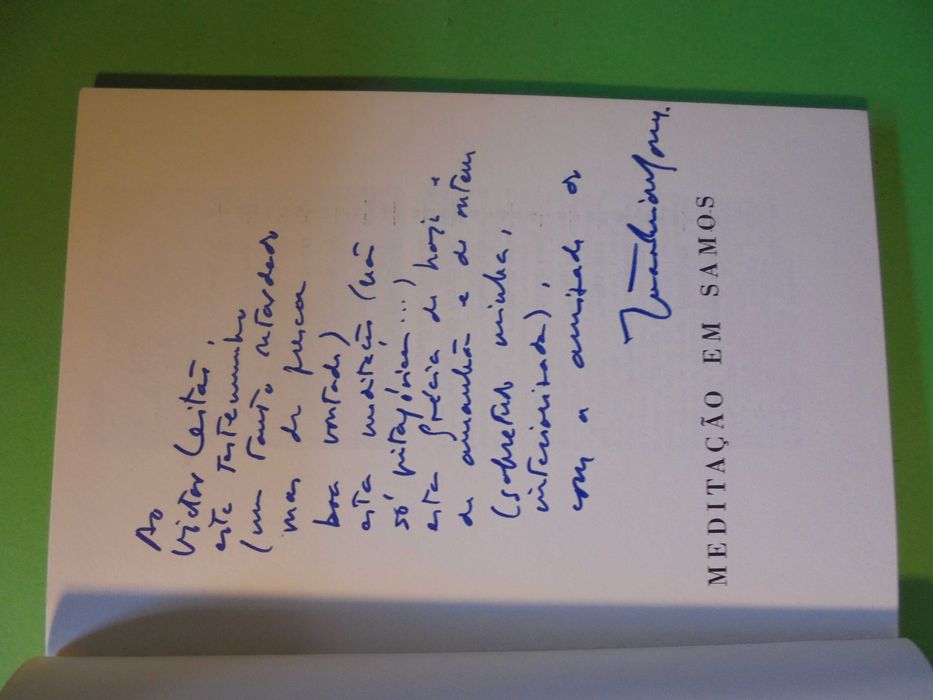 Ao
Victor Leitão,
este testemunho
(um tanto retardado
mas de fresca
boa vontade)
esta meditação (não
só pitagórica...)
esta Grécia de hoje e
de amanhã e de ontem
(sobretudo minha,
interiorizada),
com a amizade do
MEDITAÇÃO EM SAMOS